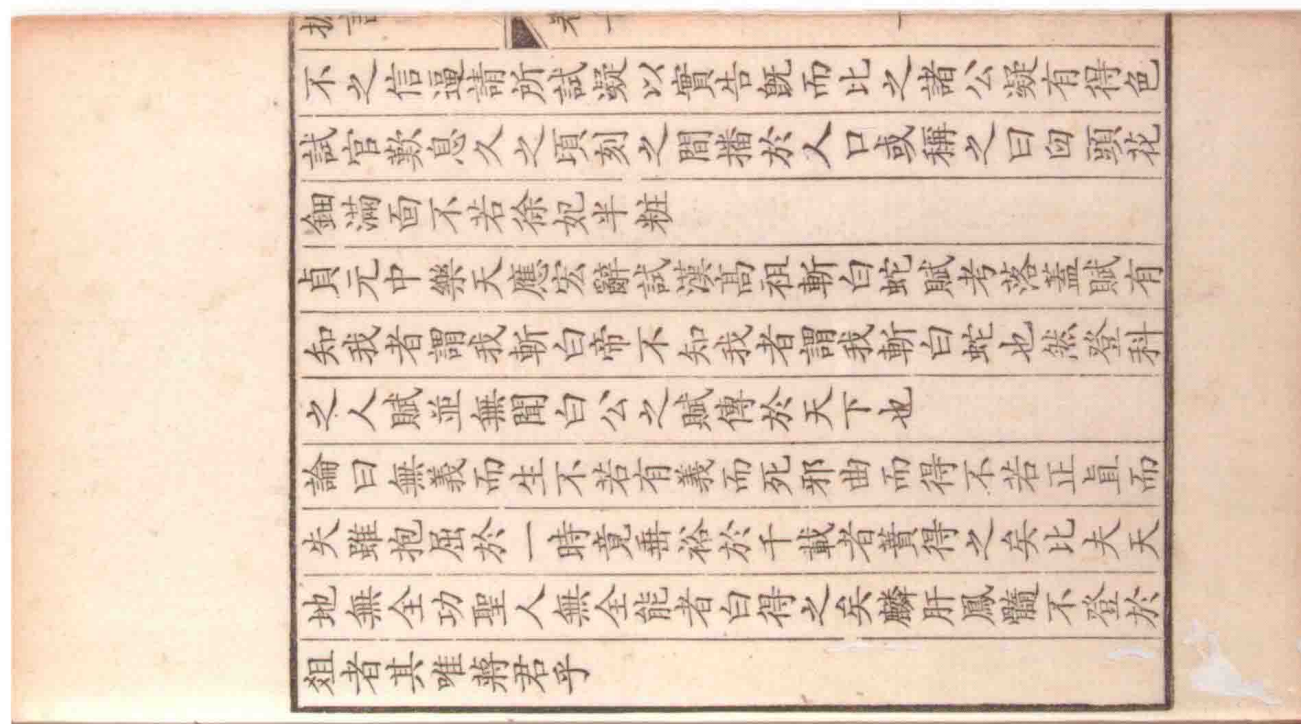 不之信逼請所試凝以實告旣而比之諸公凝有得色
試官歎息久之頃刻之間播於人口或稱之曰臼頭花
鈿滿面不若徐妃半粧
貞元中樂天應宏辭試漢高祖斬白蛇賦考落蓋賦有
知我者謂我斬白帝不知我者謂我斬白蛇也然登科
之人賦並無聞白公之賦傳於天下也
論曰無義而生不若有義而死邪曲而得不若正直而
失雖抱屈於一時竟垂裕於千載者蕡得之矣比夫天
地無全功聖人無全能者白得之矣麟肝鳳髓不登於
俎者其唯蔣君乎